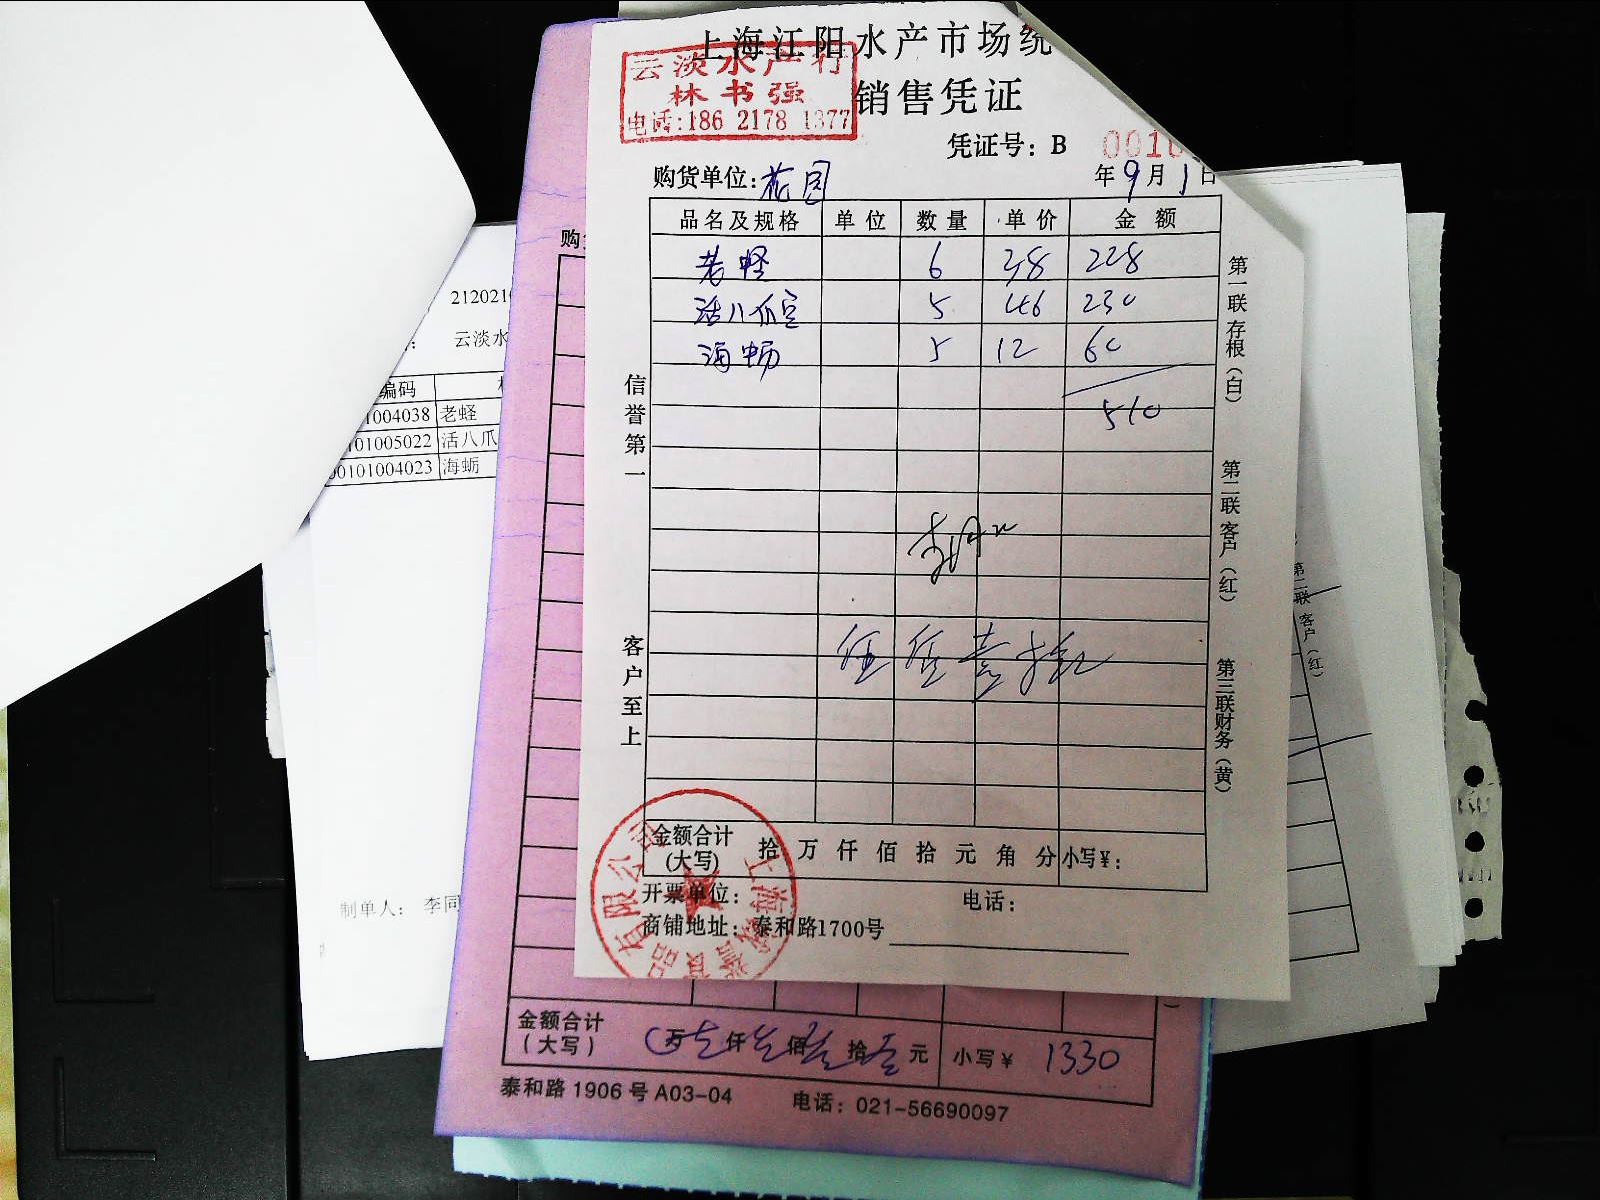 上海江阳水产市场统
销售凭证
云淡水产行
林书强
电话:186 2178 1377
凭证号: B 0010
购货单位: 花园
年9月1日
品名及规格 单位 数量 单价 金额
老蛏 6 38 228
活八爪宝 5 46 230
海蛎 5 12 60
510
伍佰壹拾
信誉第一
客户至上
第一联存根(白)
第二联客户(红)
第三联财务(黄)
金额合计(大写) 拾万仟佰拾元角分 小写¥:
开票单位: 电话:
商铺地址: 泰和路1700号
购
212021
云淡水
编码
1004038 老蛏
101005022 活八爪
00101004023 海蛎
制单人: 李同
第二联客户(红)
金额合计(大写) 万 仟 佰 拾 元 小写¥ 1330
泰和路1906号A03-04 电话: 021-56690097